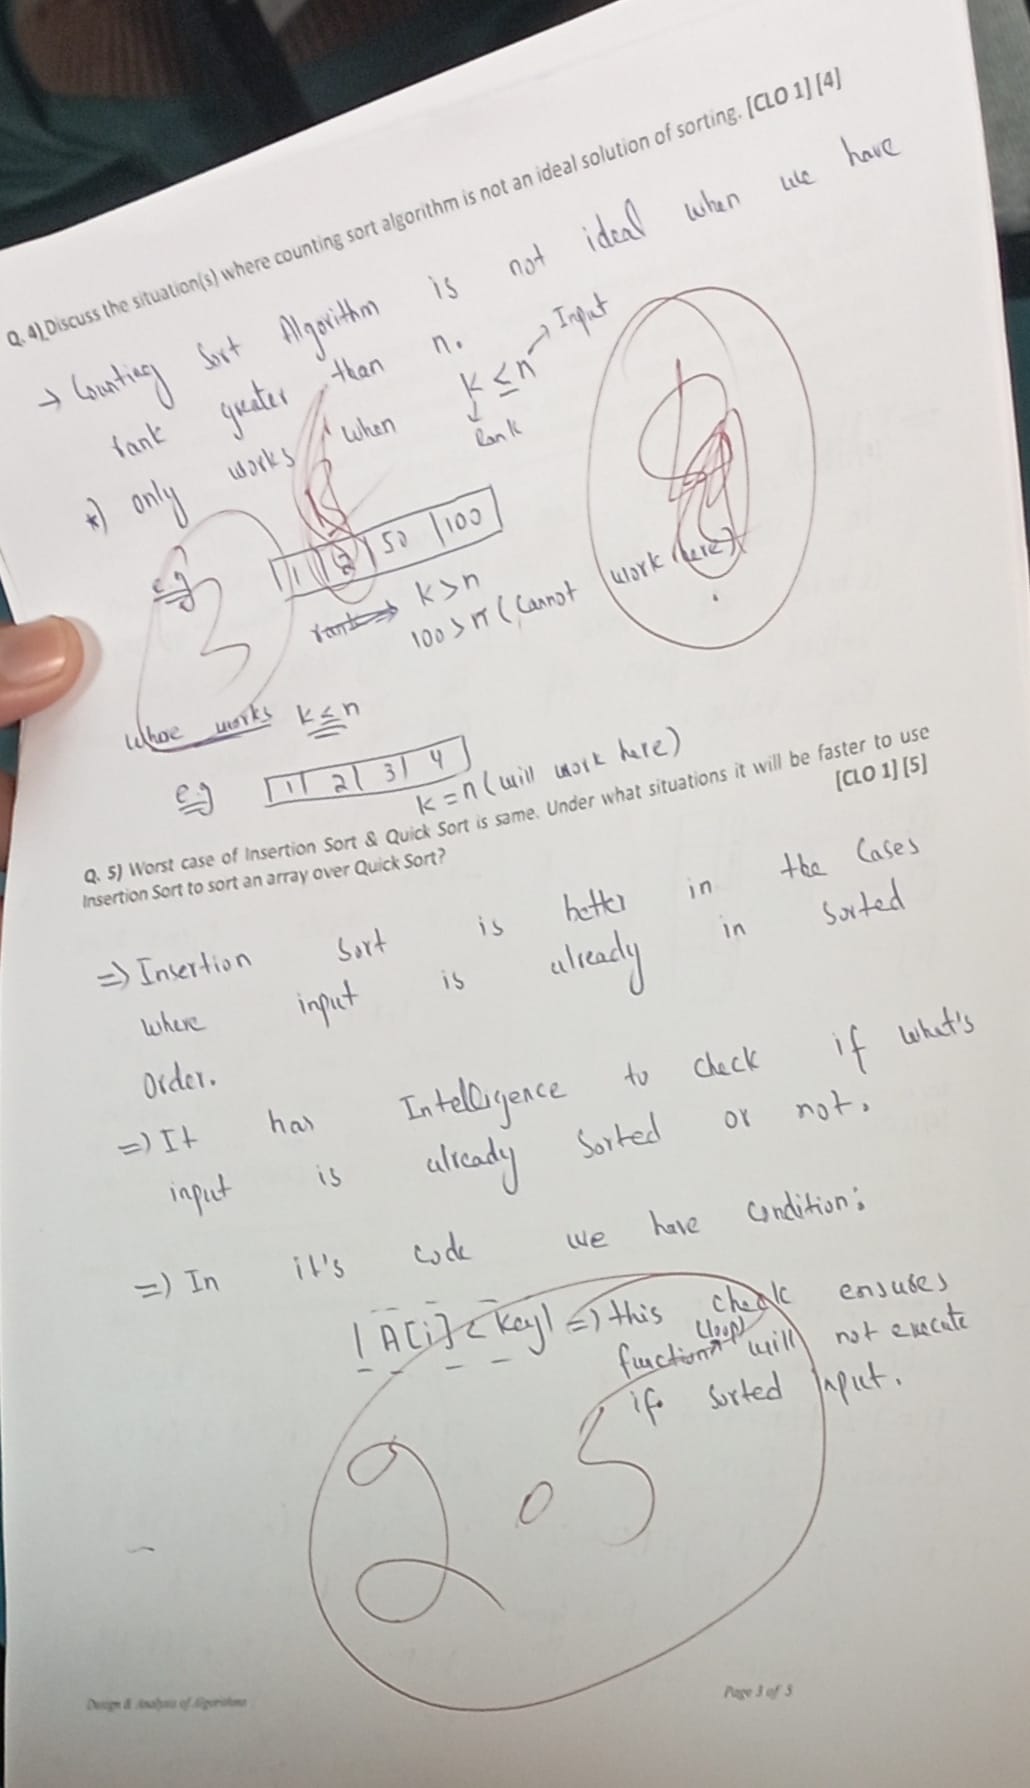 Q. 4) Discuss the situation(s) where counting sort algorithm is not an ideal solution of sorting. [CLO 1] [4]
→ Counting Sort Algorithm is not ideal when we have
rank greater than n.
*) only works when k ≤ n → Input
↓
Rank
e.g
1 | 2 | 50 | 100
k > n
100 > n (Cannot work here)
3
works k ≤ n
e.g
1 | 2 | 3 | 4
k = n (will work here)
Q. 5) Worst case of Insertion Sort & Quick Sort is same. Under what situations it will be faster to use
Insertion Sort to sort an array over Quick Sort?
[CLO 1] [5]
=> Insertion Sort is better in the Cases
where input is already in sorted
Order.
=) It has Intelligence to check if what's
input is already Sorted or not.
=) In it's code we have Condition:
| A[i] < key | => this check ensures
function (loop) will not execute
if sorted input.
2.5
Design & Analysis of Algorithms
Page 3 of 5